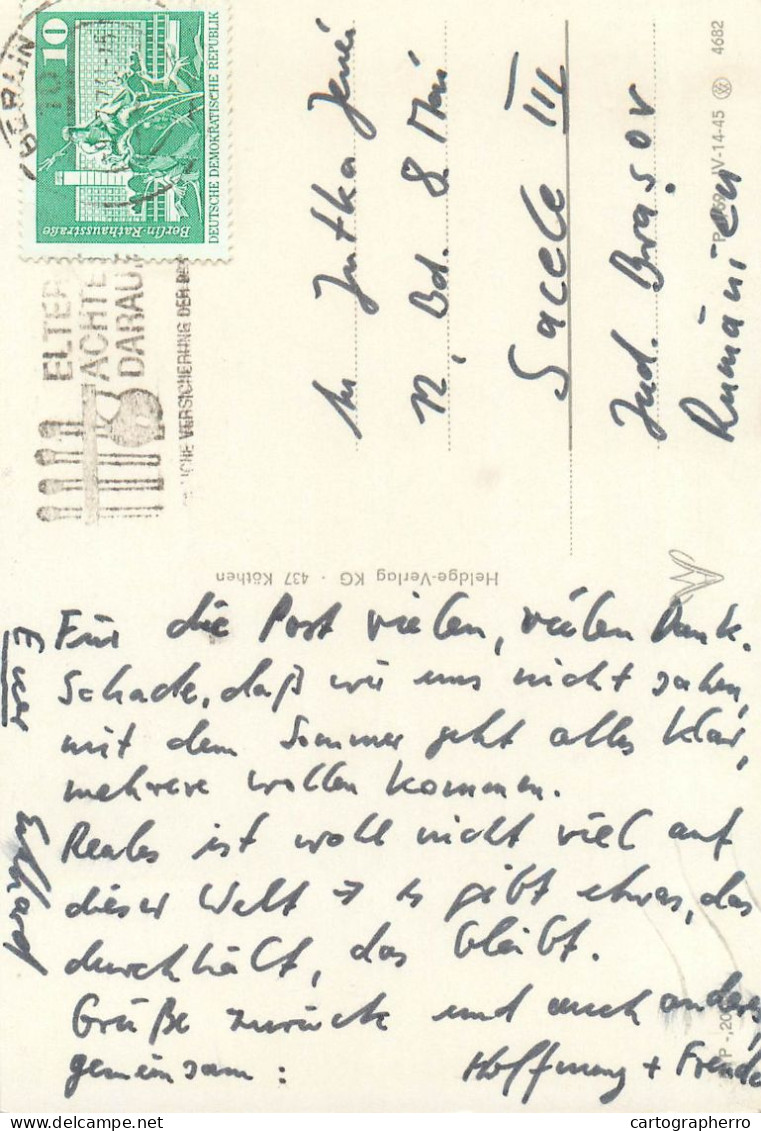 Für die Post vielen, vielen Dank.
Schade, daß wir uns nicht sahen,
mit dem Sommer geht alles klar,
mehrere wollen kommen.
Reales ist wohl nicht viel auf
dieser Welt → es gibt etwas, das
durchhält, das bleibt.
Grüße zurück und auch anders,
gemeinsam: Hoffnung + Freude
Euer
Ekkhard
Heldge-Verlag KG · 437 Köthen
Jutka Jenei
N. Bd. 8 Mai
Sacele III
Jud. Brașov
Rumänien
IV-14-45 4682
10
DEUTSCHE DEMOKRATISCHE REPUBLIK
Berlin-Rathausstraße
BERLIN
ELTER
ACHTE
DARAU
VERSICHERUNG DER
cartographerro